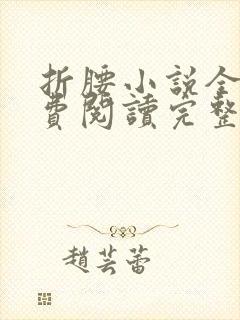 折腰小說全
費閱讀完整
趙芸蕾